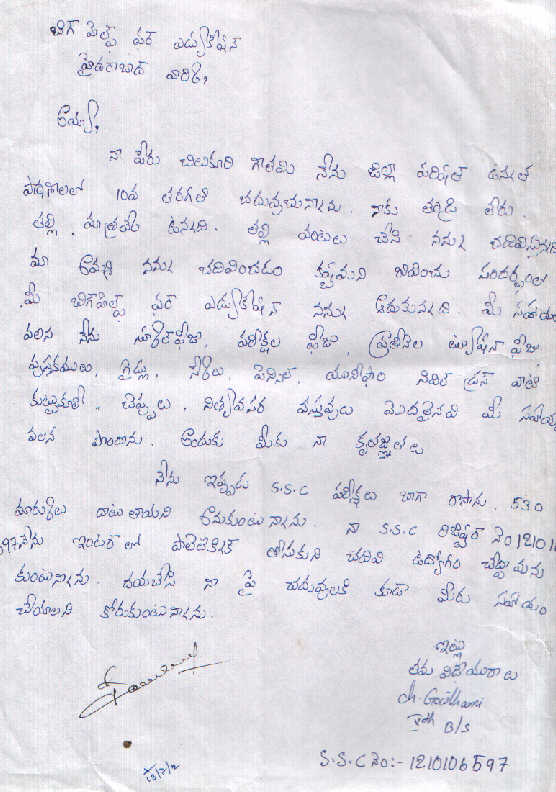 బిగ్ హెల్ప్ ఫర్ ఎడ్యుకేషన్
హైదరాబాద్ వారికి,
అయ్యా,
నా పేరు చిలుకూరి గౌతమి నేను జిల్లా పరిషత్ ఉన్నత
పాఠశాలలో 10వ తరగతి చదువుచున్నాను. నాకు తండ్రి లేరు.
తల్లి మాత్రమే ఉన్నది. తల్లి వంటలు చేసి నన్ను
మా అమ్మ నన్ను చదివించడం కష్టమని భావించు సందర్భంలో
మీ బిగ్ హెల్ప్ ఫర్ ఎడ్యుకేషన్ నన్ను ఆదుకున్నది. మీ సహాయం
వలన నేను స్కూల్ ఫీజు, పరీక్షల ఫీజు, ట్యూషన్ ఫీజు
పుస్తకములు, గైడ్లు, పేర్లు పెన్సిల్, యూనిఫాం సివిల్ డ్రస్ వాటి
కుట్టుకూలి, చెప్పులు, నిత్యావసర వస్తువులు మొదలైనవి మీ సహాయం
వలన పొందాను. అందుకు మీకు నా కృతజ్ఞతలు
నేను ఇప్పుడు S.S.C పరీక్షలు బాగా రాసాను. 530
మార్కులు దాటుతాయని అనుకుంటున్నాను. నా S.S.C రిజిష్టర్ నెం 121010
6597 నేను ఇంటర్ లో పాలిటెక్నిక్ తీసుకుని చదివి ఉద్యోగం చేద్దామను
కుంటున్నాను. దయచేసి నా పై చదువులకి కూడా మీరు సహాయం
చేయాలని కోరుకుంటున్నాను.
ఇట్లు
తమ విధేయురాలు
ch. Gouthami
10th B/S
S.S.C నెం:- 1210106597